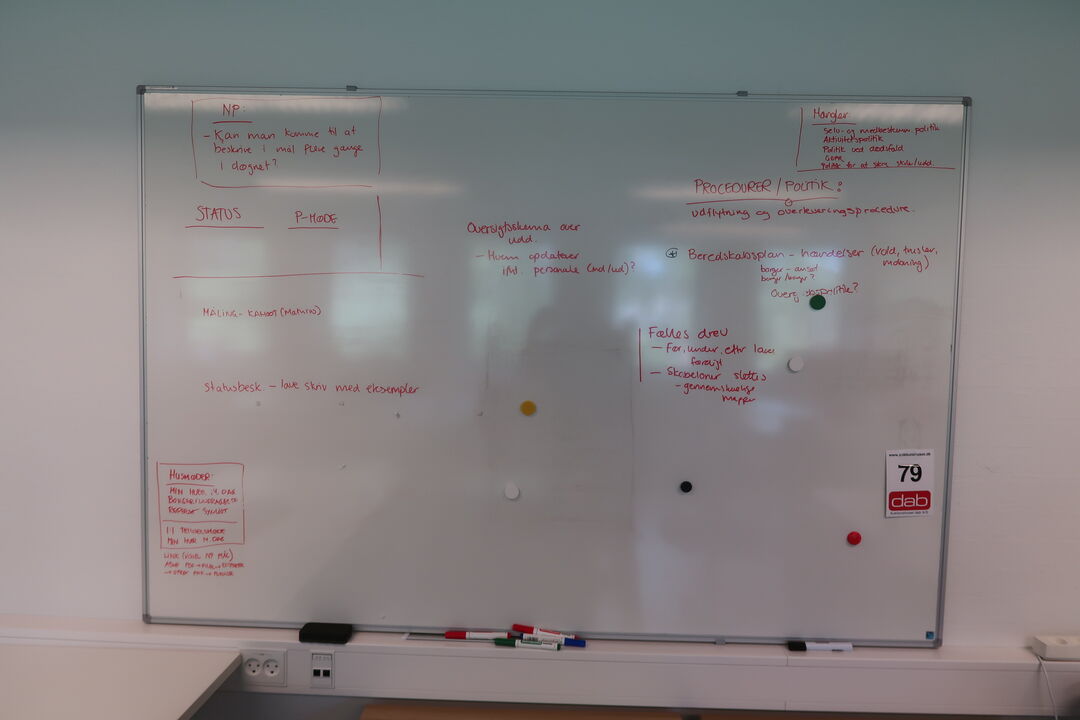 NP:
- Kan man komme til at
beskrive i mål flere gange
i døgnet?
STATUS
P-MØDE
MÅLING - KAHOOT (Maturio)
Statusbesk. - lave skriv med eksempler
HUSMØDER:
MIN HVER 14. DAG
REFERAT SYNLIGT
1:1
MIN HVER 14. DAG
LINK
Oversigtsskema over
udd.
- Hvem opdaterer
ift. personale (ind/ud)?
Mangler:
Selv- og medbestemm. politik
Aktivitetspolitik
Politik ved dødsfald
GDPR
Politik for at skire skole/udd.
PROCEDURER/POLITIK:
udflytning og overleveringsprocedure.
Beredskabsplan - hændelser (vold, trusler,
borger - ansat
borger/borger?
Fælles drev
- Før, under, efter laves
færdigt
- Skabeloner slettes
- gennemskuelige
mapper
www.auktionshuset.dk
79
dab